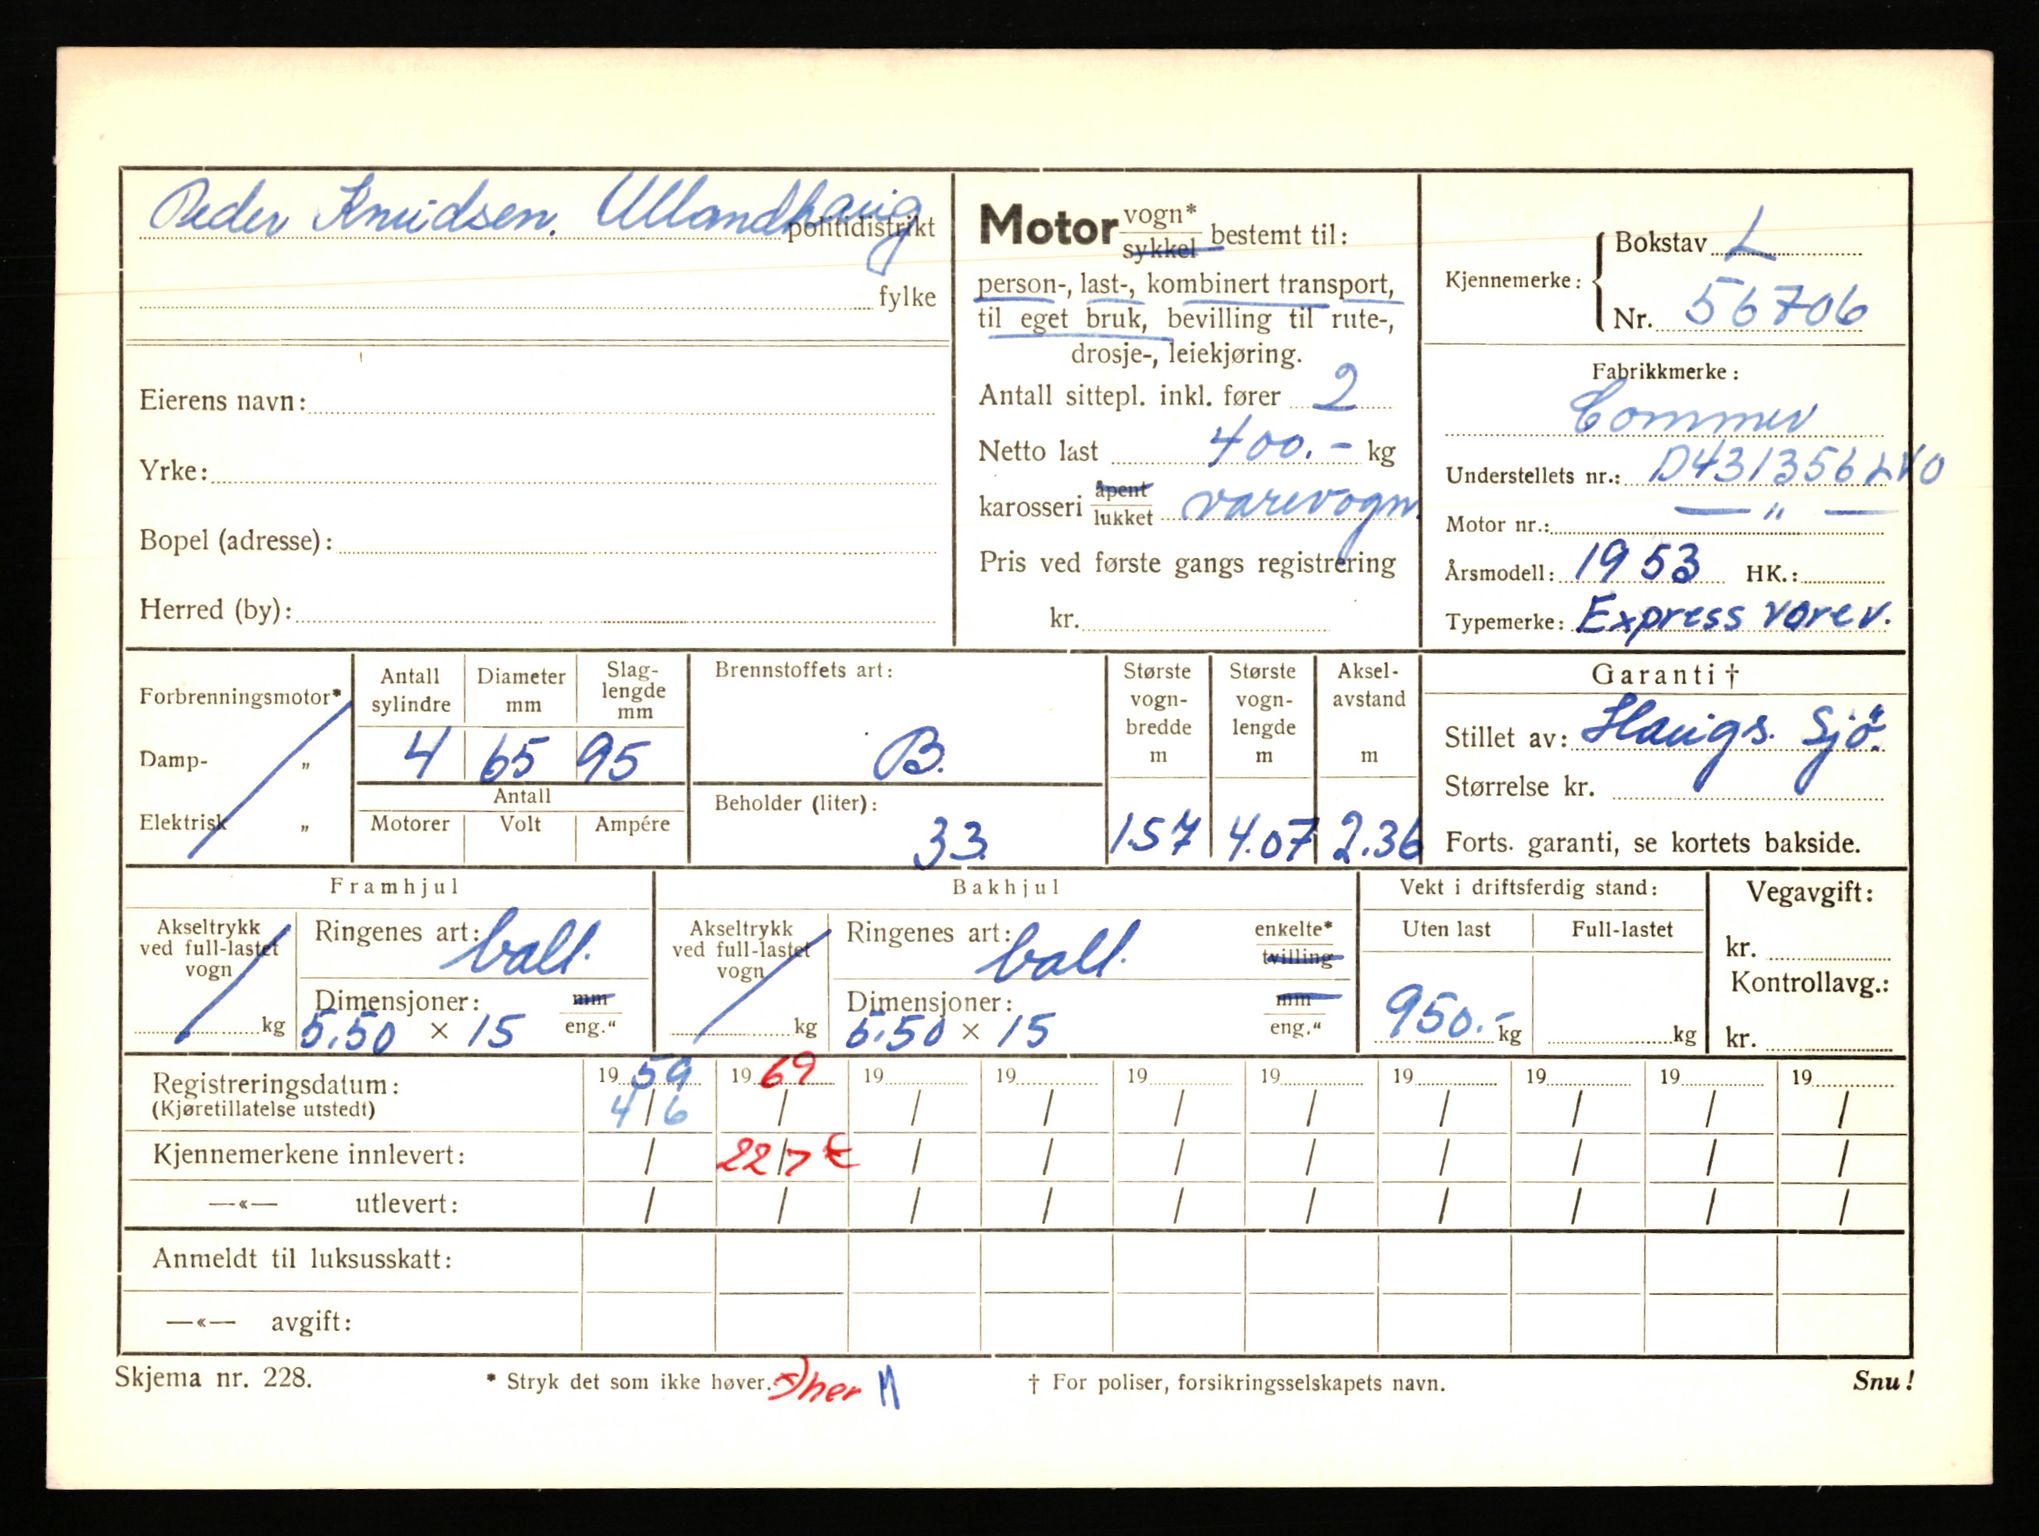 Peder Knudsen. Ullandhaug
politidistrikt
fylke
Eierens navn:
Yrke:
Bopel (adresse):
Herred (by):
Motor vogn* / sykkel bestemt til:
person-, last-, kombinert transport,
til eget bruk, bevilling til rute-,
drosje-, leiekjøring.
Antall sittepl. inkl. fører 2
Netto last 400.- kg
karosseri åpent / lukket varevogn.
Pris ved første gangs registrering
kr.
Kjennemerke: Bokstav L
Nr. 56706
Fabrikkmerke:
Commer
Understellets nr.: D431356LVO
Motor nr.: — „ —
Årsmodell: 1953 HK.:
Typemerke: Express varev.
Forbrenningsmotor*
Damp- „
Elektrisk „
Antall sylindre 4
Diameter mm 65
Slag-lengde mm 95
Antall
Motorer Volt Ampére
Brennstoffets art:
B.
Beholder (liter):
33
Største vogn-bredde m 1.57
Største vogn-lengde m 4.07
Aksel-avstand m 2.36
Garanti †
Stillet av: Haugs. Sjö.
Størrelse kr.
Forts. garanti, se kortets bakside.
Framhjul
Akseltrykk ved full-lastet vogn kg
Ringenes art: ball.
Dimensjoner: mm / eng."
5.50 × 15
Bakhjul
Akseltrykk ved full-lastet vogn kg
Ringenes art: ball. enkelte* / tvilling
Dimensjoner: mm / eng."
5.50 × 15
Vekt i driftsferdig stand:
Uten last Full-lastet
950.- kg kg
Vegavgift:
kr.
Kontrollavg.:
kr.
Registreringsdatum: 1959 1969 19 19 19 19 19 19 19 19
(Kjøretillatelse utstedt) 4/6 / / / / / / / / /
Kjennemerkene innlevert: / 22/7 / / / / / / / /
—«— utlevert: / / / / / / / / / /
Anmeldt til luksusskatt:
—«— avgift:
Skjema nr. 228. * Stryk det som ikke høver. x) her M † For poliser, forsikringsselskapets navn. Snu!